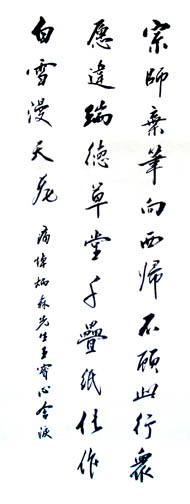 宗師棄筆向西歸不顧此行衆
愿違瑞德草堂千疊紙任作
白雪漫天飛 痛悼炳森先生 王心含淚